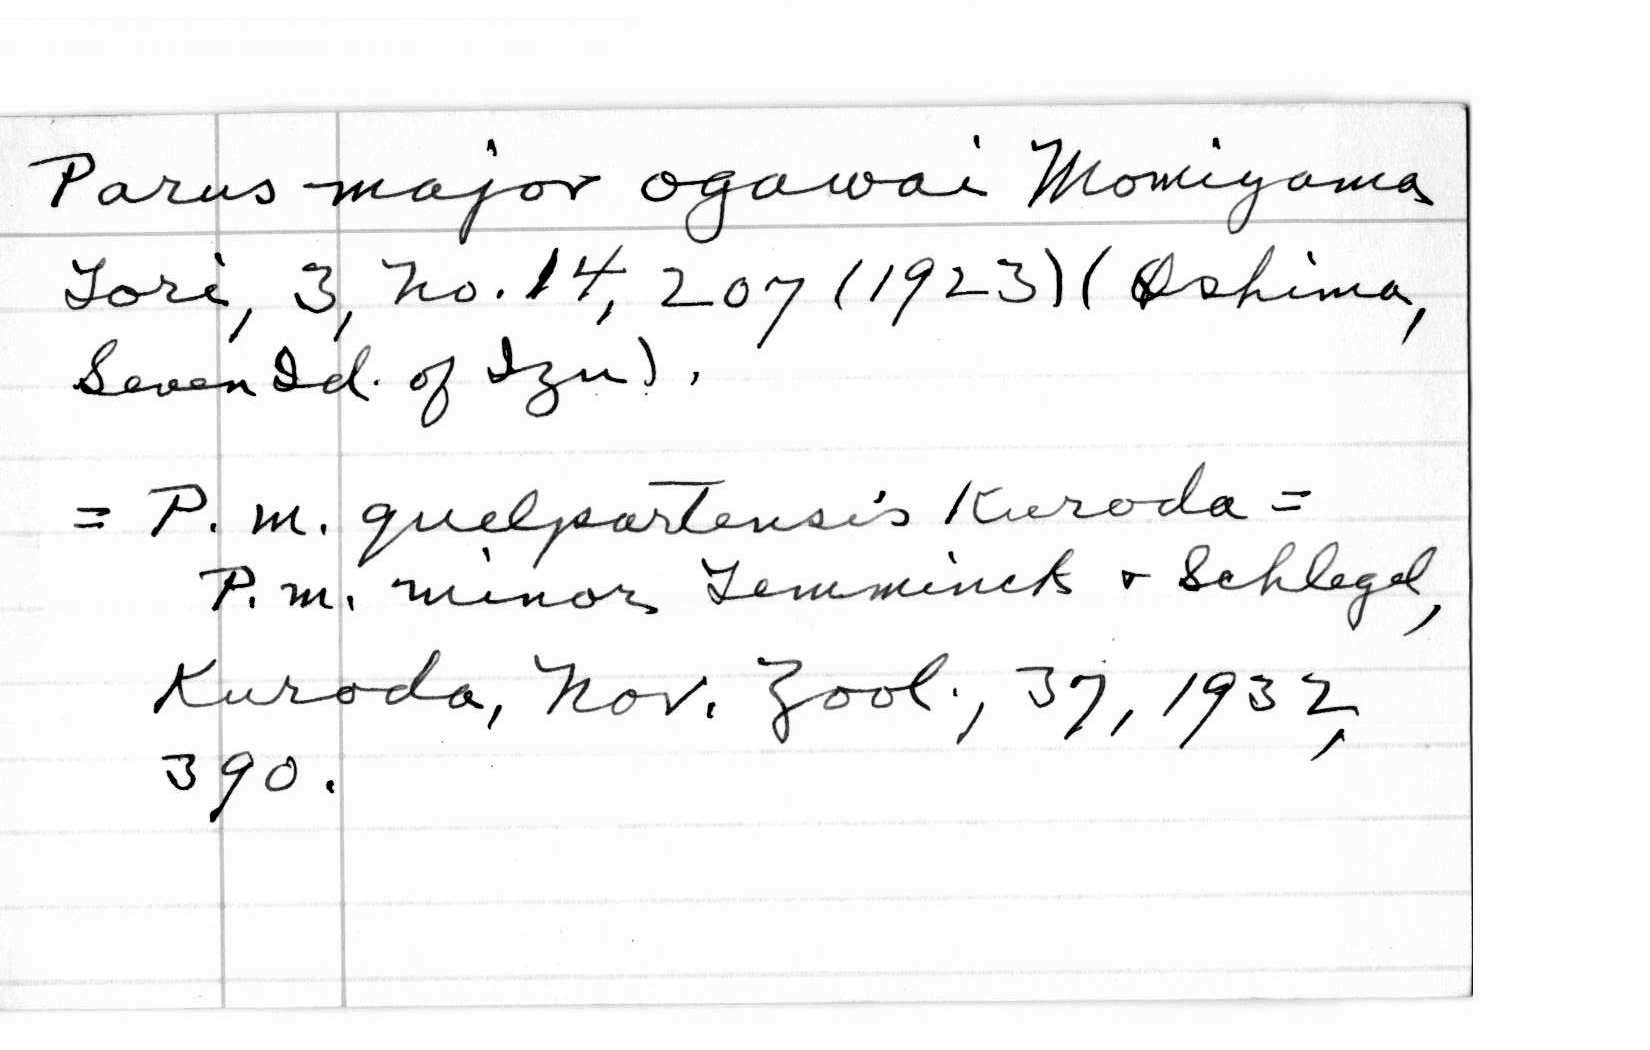 Parus major ogawai Momiyama
Tori, 3, No. 14, 207 (1923) (Oshima,
Seven Id. of Izu).
= P. m. quelpartensis Kuroda =
P. m. minor Temminck & Schlegel,
Kuroda, Nov. Zool., 37, 1932,
390.